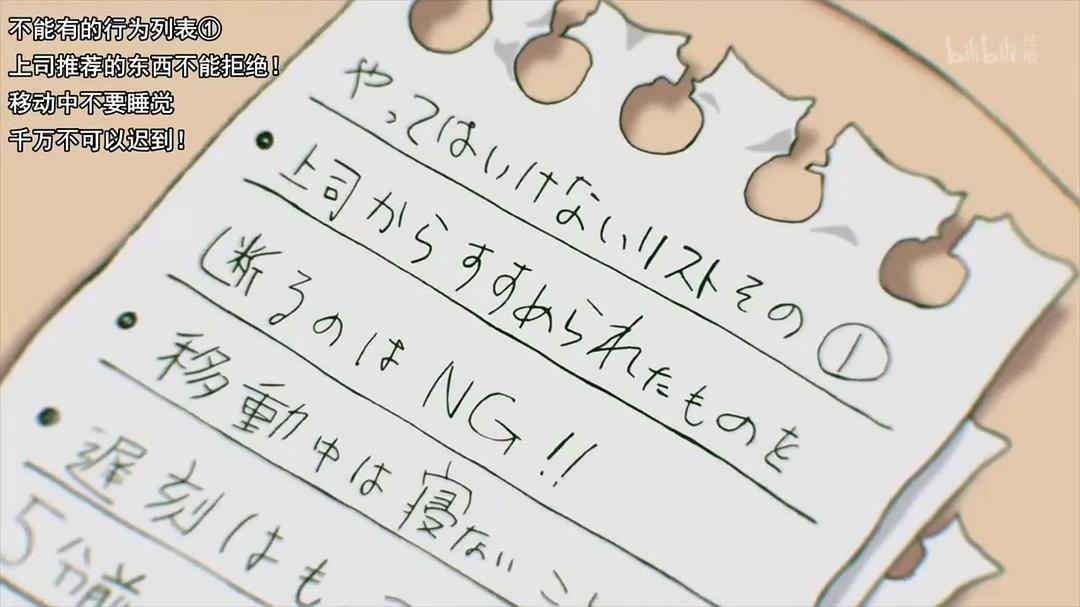 不能有的行为列表①
上司推荐的东西不能拒绝！
移动中不要睡觉
千万不可以迟到！
bilibili
やってはいけないリストその①
・上司からすすめられたものを
断るのはNG!!
・移動中は寝ないこと
・遅刻はも
5分前